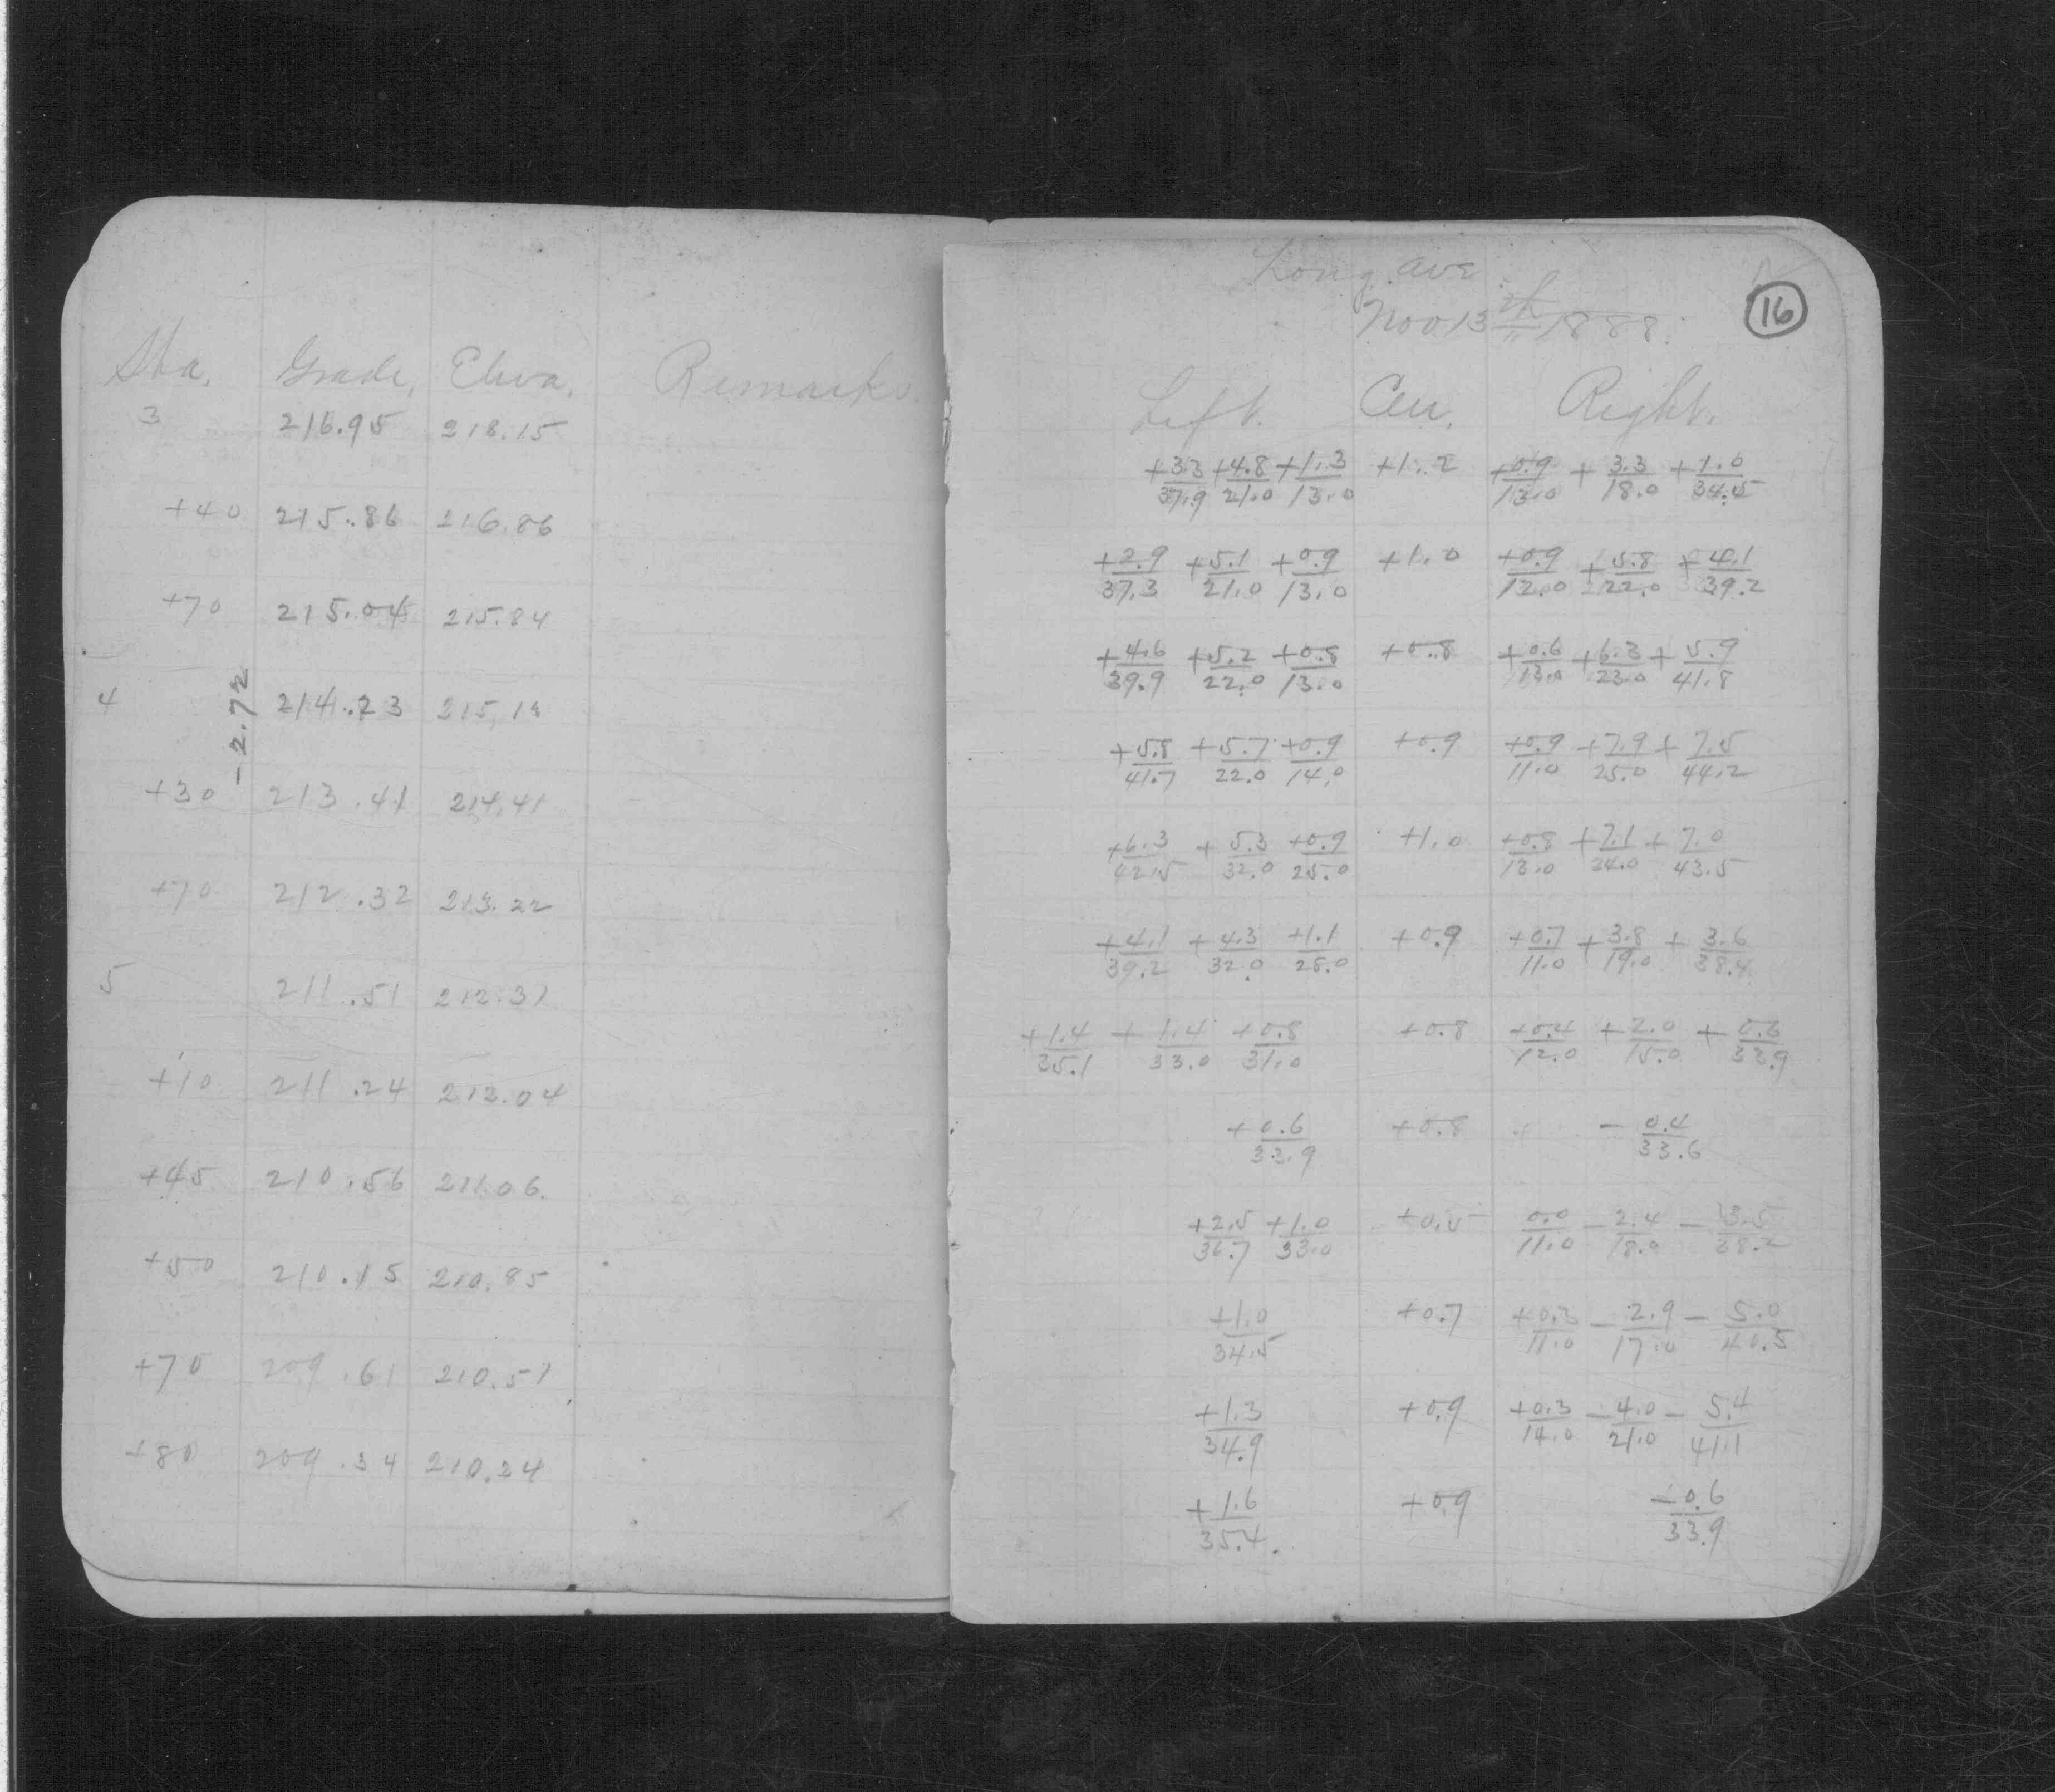 Sta. Grade, Eleva. Remarks.
3 216.95 218.15
+40 215.86 216.86
+70 215.04 215.84
4 214.23 215.13
-2.72
+30 213.41 214.41
+70 212.32 213.22
5 211.51 212.31
+10 211.24 212.04
+45 210.56 211.06.
+50 210.15 210.85
+70 209.61 210.51
+80 209.34 210.24
Long Ave
Nov 13th 1888.
16
Left. Cen. Right.
+3.3 +4.8 +1.3 +1.2 +0.9 +3.3 +1.0
37.9 21.0 13.0 13.0 18.0 34.5
+2.9 +5.1 +0.9 +1.0 +0.9 +5.8 +4.1
37.3 21.0 13.0 12.0 22.0 39.2
+4.6 +5.2 +0.8 +0.8 +0.6 +6.3 +5.9
39.9 22.0 13.0 13.0 23.0 41.8
+5.8 +5.7 +0.9 +0.9 +0.9 +7.9 +7.5
41.7 22.0 14.0 11.0 25.0 44.2
+6.3 +5.3 +0.9 +1.0 +0.8 +7.1 +7.0
42.5 32.0 25.0 13.0 24.0 43.5
+4.1 +4.3 +1.1 +0.9 +0.7 +3.8 +3.6
39.2 32.0 28.0 11.0 19.0 38.4
+1.4 +1.4 +0.8 +0.8 +0.4 +2.0 +0.6
35.1 33.0 31.0 12.0 15.0 33.9
+0.6 +0.8 -0.4
33.9 33.6
+2.5 +1.0 +0.5 0.0 -2.4 -3.5
36.7 33.0 11.0 18.0 38.2
+1.0 +0.7 +0.3 -2.9 -5.0
34.5 11.0 17.0 40.5
+1.3 +0.9 +0.3 -4.0 -5.4
34.9 14.0 21.0 41.1
+1.6 +0.9 -0.6
35.4. 33.9